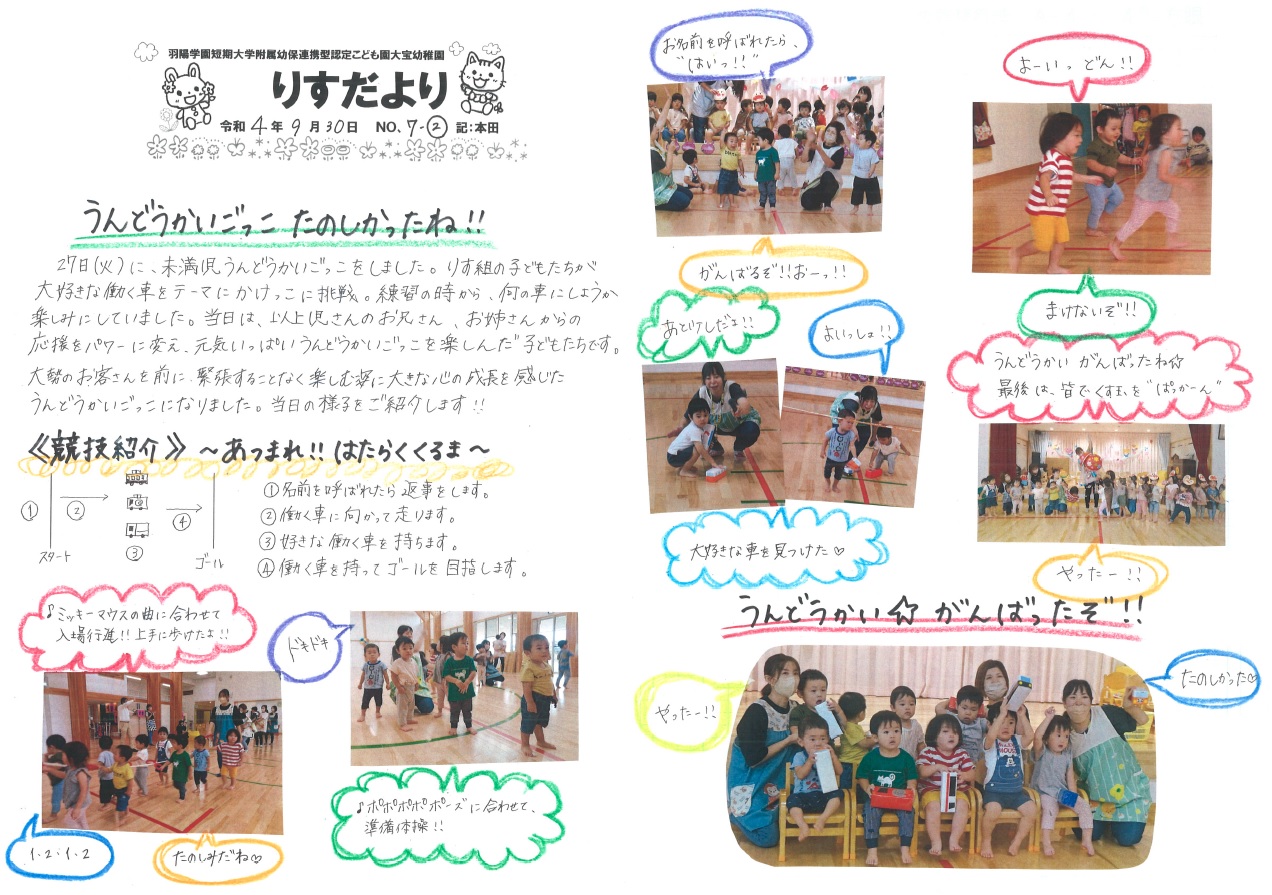 羽陽学園短期大学附属幼保連携型認定こども園大宝幼稚園
りすだより
令和4年9月30日 NO、7-② 記:本田
うんどうかいごっこ たのしかったね!!
27日(火)に、未満児うんどうかいごっこをしました。りす組の子どもたちが
大好きな働く車をテーマにかけっこに挑戦。練習の時から、何の車にしようか
楽しみにしていました。当日は、以上児さんのお兄さん、お姉さんからの
応援をパワーに変え、元気いっぱいうんどうかいごっこを楽しんだ子どもたちです。
大勢のお客さんを前に、緊張することなく楽しむ姿に大きな心の成長を感じた
うんどうかいごっこになりました。当日の様子をご紹介します!!
《競技紹介》 ~あつまれ!! はたらくくるま~
① ② ③ ④
スタート ゴール
①名前を呼ばれたら返事をします。
②働く車に向かって走ります。
③好きな働く車を持ちます。
④働く車を持ってゴールを目指します。
♪ミッキーマウスの曲に合わせて
入場行進!!上手に歩けたよ!!
ドキドキ
1・2・1・2
たのしみだね♡
♪ポポポポポーズに合わせて、
準備体操!!
お名前を呼ばれたら、
"はいっ!!"
がんばるぞ!!おーっ!!
よーいっ どん!!
まけないぞ!!
あと少しだよ!!
よいっしょ!!
大好きな車を見つけた♡
うんどうかい がんばったね☆
最後は、皆でくす玉を"ぱっかーん"
やったー!!
うんどうかい☆ がんばったぞ!!
やったー!!
たのしかった♡